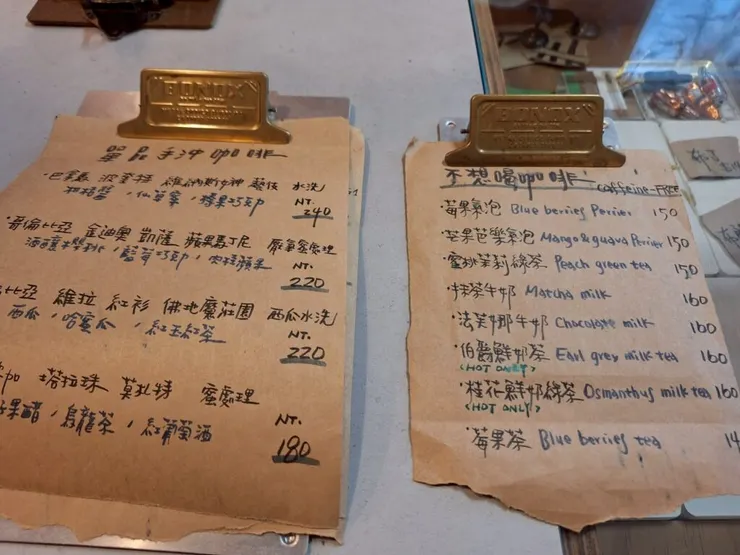 BONOX
單品手沖咖啡
水洗
NT.
240
哥倫比亞 金迪奧 凱薩 蘋果馬丁尼 厭氧蜜處理
酒釀櫻桃、藍莓巧克力、肉桂蘋果
NT.
220
比亞 維拉 紅衫 佛地魔莊園 西瓜水洗
西瓜、哈蜜瓜、紅玉紅茶
NT.
220
塔拉珠 莫札特 蜜處理
果醋、烏龍茶、紅葡萄酒
NT.
180
BONOX
不想喝咖啡 caffeine-FREE
·莓果氣泡 Blue berries Perrier 150
·芒果芭樂氣泡 Mango & guava Perrier 150
·蜜桃茉莉綠茶 Peach green tea 150
·抹茶牛奶 Matcha milk 160
·法芙娜牛奶 Chocolate milk 160
·伯爵鮮奶茶 Earl grey milk tea 160
(HOT ONLY)
·桂花鮮奶綠茶 Osmanthus milk tea 160
(HOT ONLY)
·莓果茶 Blue berries tea 14